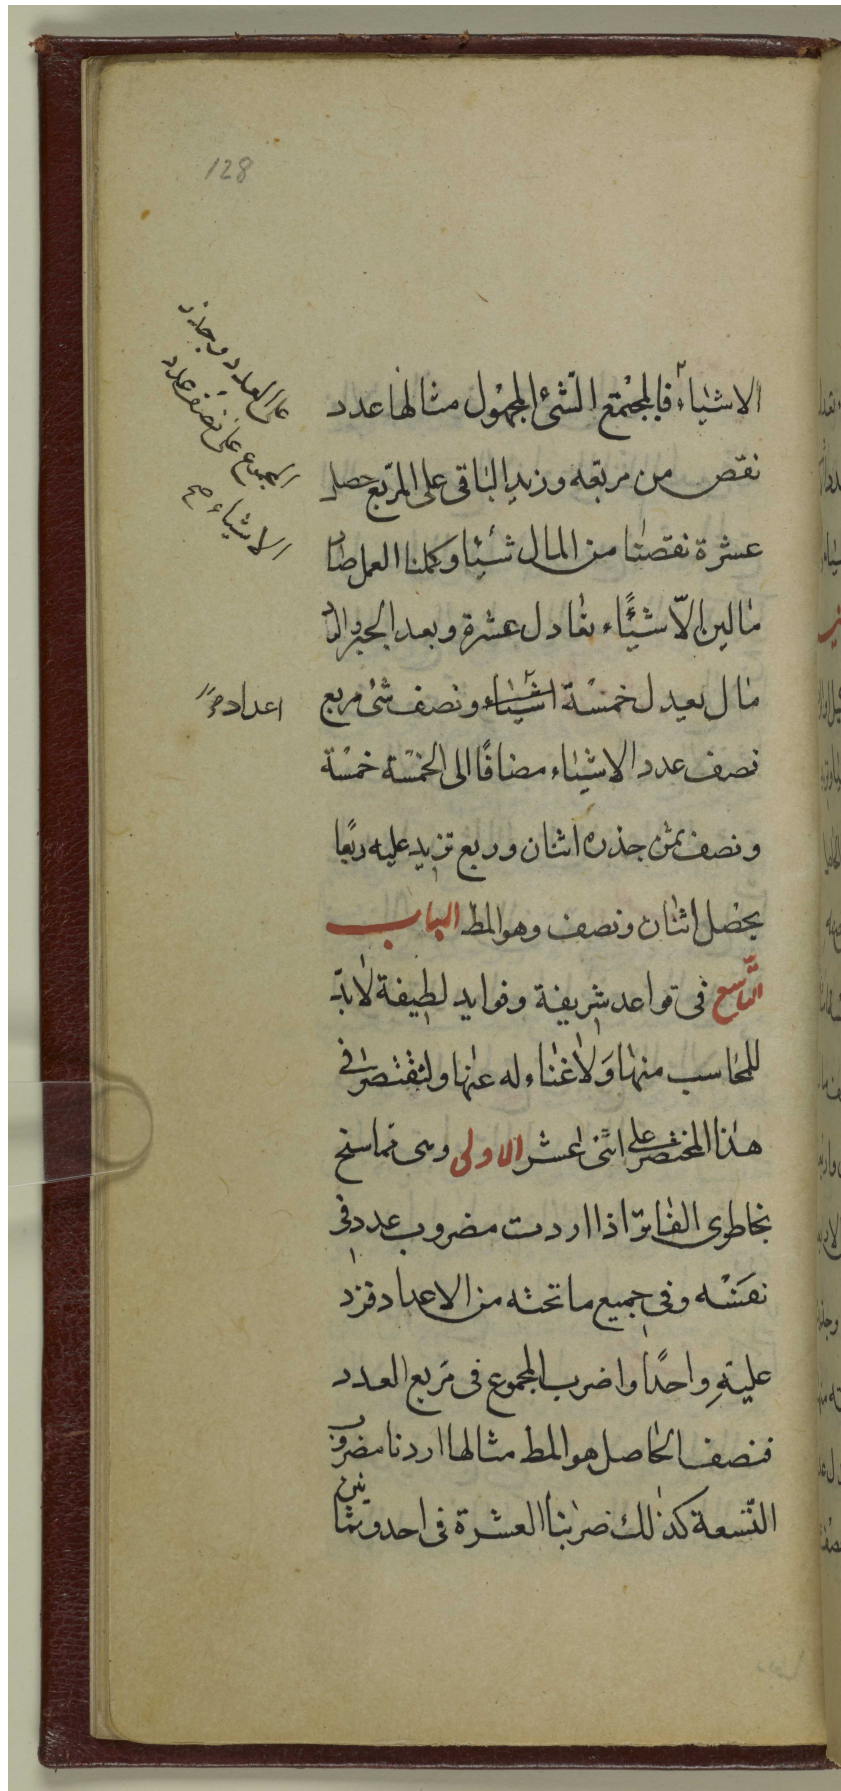 128
على العدد وجذر
المجموع على نصف عدد
الاشياء صح
الاشياء فالمجتمع الشئ المجهول مثالها عدد
نقص من مربعه وزيد الباقى على المربع حصل
عشرة نقصنا من المال شيئا وكملنا العمل صار
مالين الّا شيئًاء تعادل عشرة وبعد الجبر والرد
مال يعدل خمسة اشياء ونصف شئ مربع
اعداد
نصف عدد الاشياء مضافًا الى الخمسة خمسة
ونصف ثمن جذره اثنان وربع تزيد عليه ربعًا
يحصل اثنان ونصف وهو المط الباب
التّاسع فى قواعد شريفة وفوايد لطيفة لا بدّ
للمحاسب منها ولا غناء له عنها ولنقتصر فى
هذا المختصر على اثنى عشر الاولى وهى مما سنح
بخاطرى الفاتر اذا اردت مضروب عدد فى
نفسه وفى جميع ما تحته من الاعداد فزد
عليهِ واحدًا واضرب المجموع فى مربع العدد
فنصف الحاصل هو المط مثالها اردنا مضروب
التّسعة كذلك ضربنا العشرة فى احد وثمانين